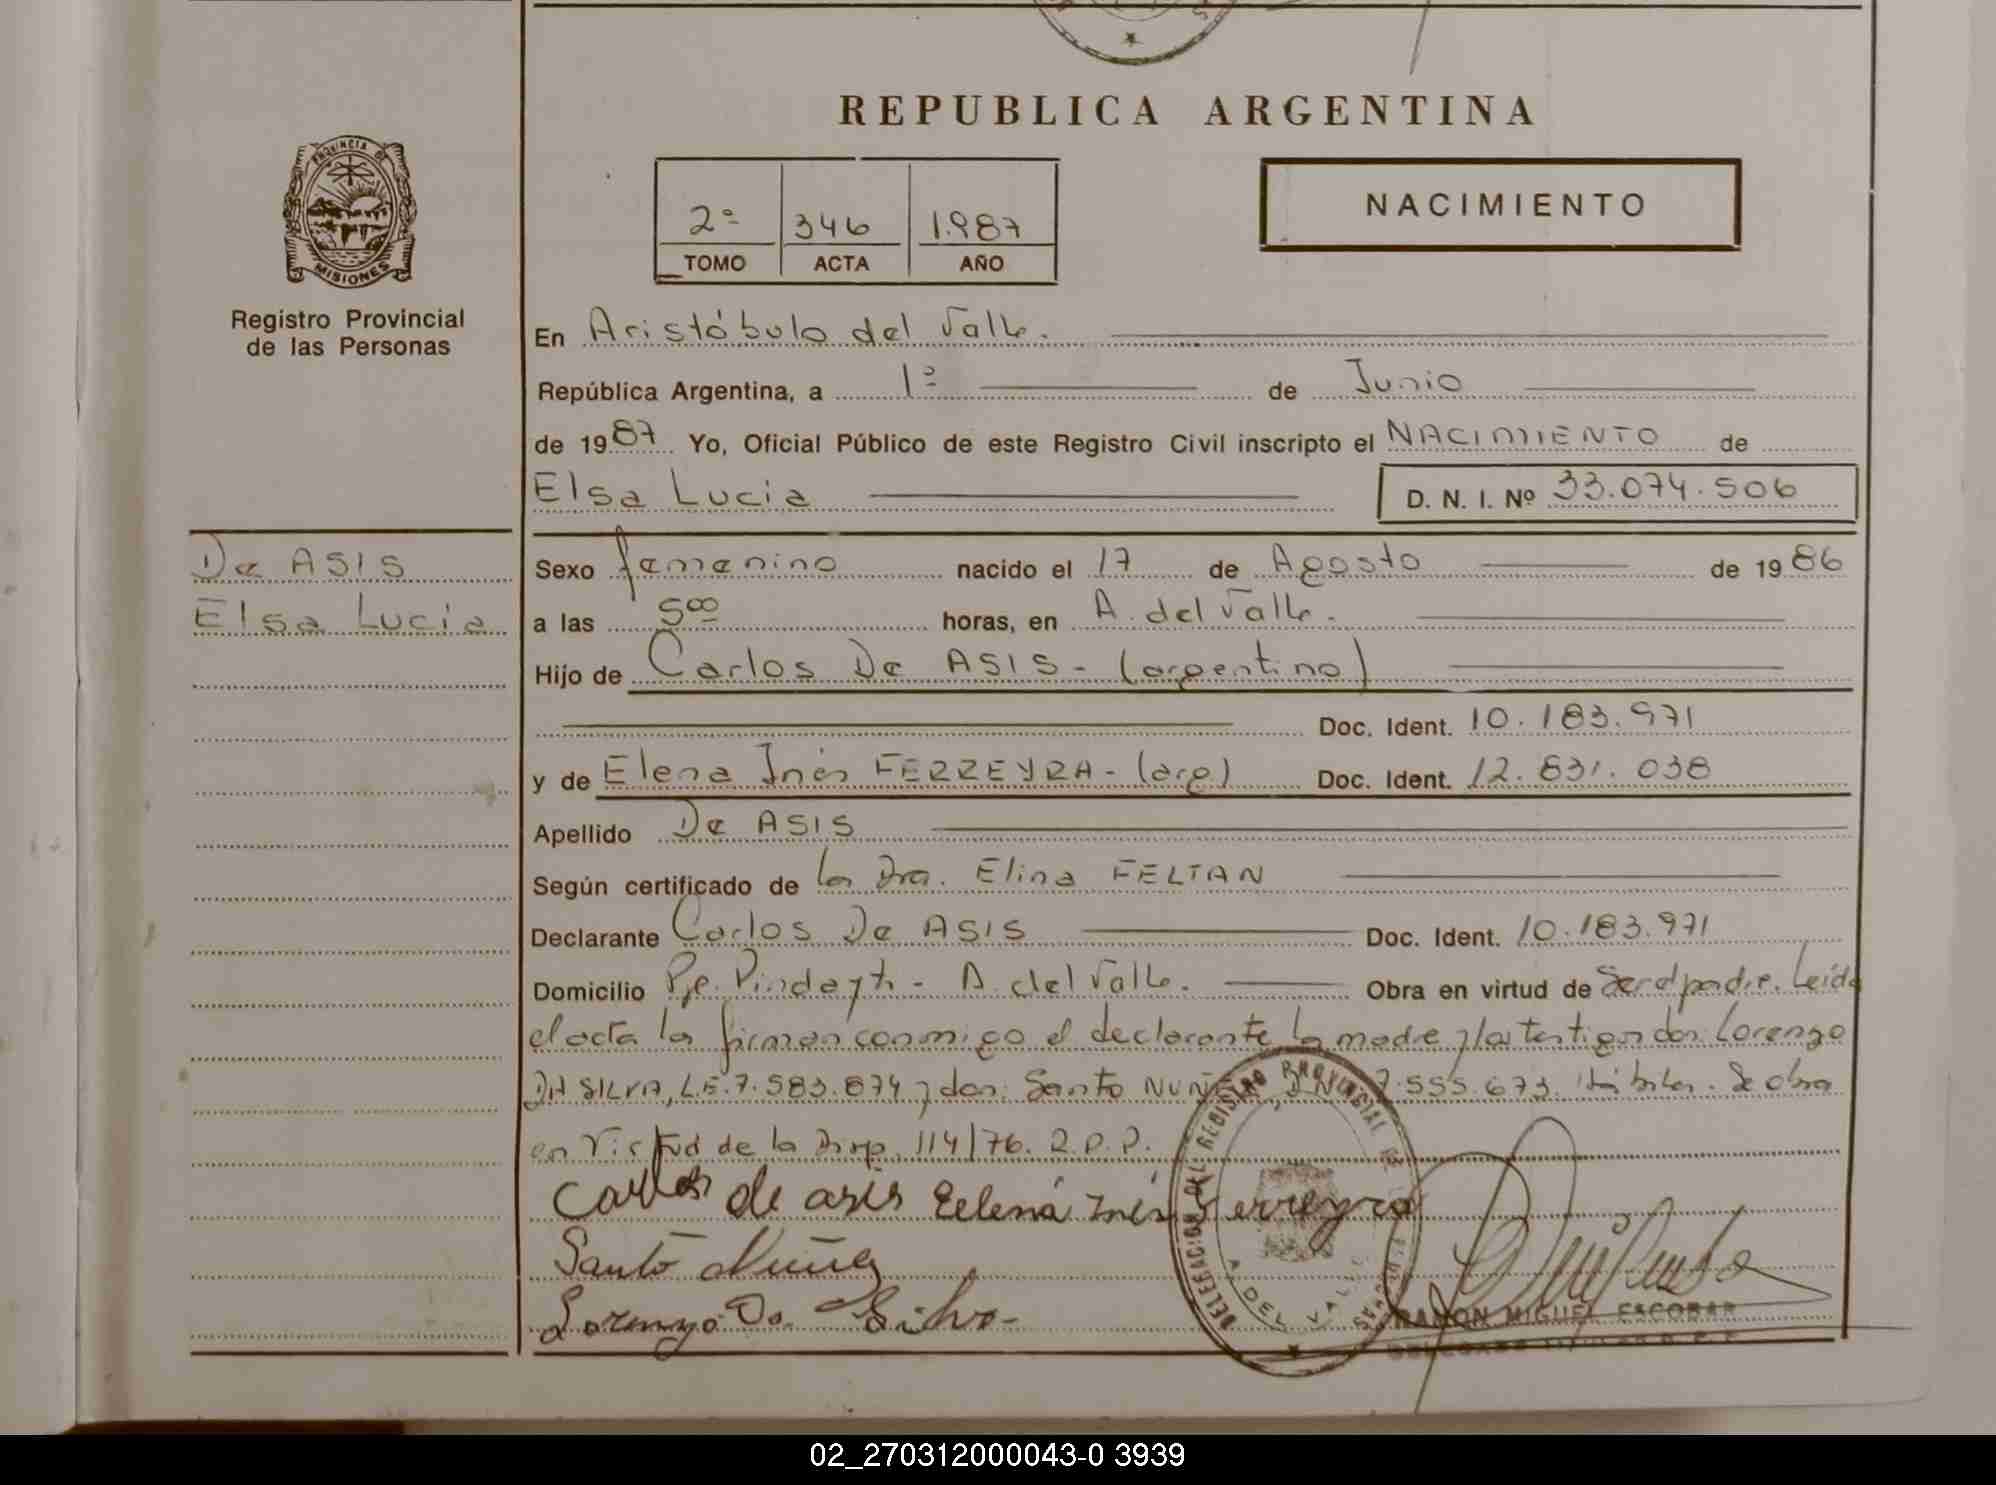 REPUBLICA ARGENTINA
PROVINCIA DE
MISIONES
Registro Provincial
de las Personas
2º 346 1.987
TOMO ACTA AÑO
NACIMIENTO
En Aristóbulo del Valle.
República Argentina, a 1º de Junio
de 1987 Yo, Oficial Público de este Registro Civil inscripto el NACIMIENTO de
Elsa Lucia D. N. I. Nº 33.074.506
De ASIS
Elsa Lucia
Sexo femenino nacido el 17 de Agosto de 1986
a las 5 00 horas, en A. del Valle.
Hijo de Carlos De ASIS - (argentino)
Doc. Ident. 10.183.971
y de Elena Inés FERREYRA - (arg) Doc. Ident. 12.831.038
Apellido De ASIS
Según certificado de la Dra. Elina FELTAN
Declarante Carlos De ASIS Doc. Ident. 10.183.971
Domicilio Pje. Pindayti - A. del Valle. Obra en virtud de Ser el padre. Leída
el acta la firman conmigo el declarante la madre y los testigos don Lorenzo
DA SILVA, L.E. 7.583.874 y don Santo 7.555.673. Hábiles. Se obra
en Virtud de la Disp. 114/76. R.P.P.
Carlos de asis Eelena Inés Ferreyra
Santo Nuñez
Lorenzo Da Silva
DELEGACION DEL REGISTRO PROVINCIAL DE LAS PERSONAS
A. DEL VALLE
RAMON MIGUEL ESCOBAR
02_270312000043-0 3939